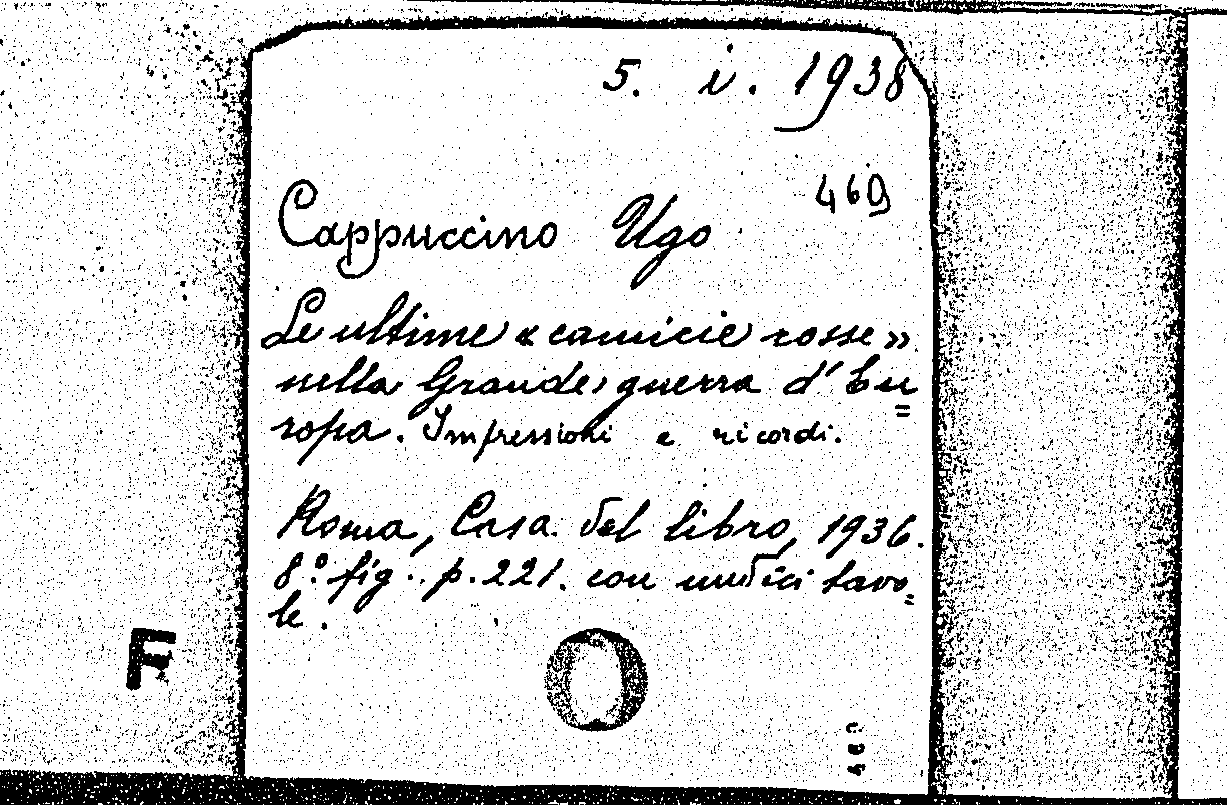 5. i. 1938
469
Cappuccino Ugo
Le ultime « camicie rosse »
nella Grande guerra d'Eu=
ropa. Impressioni e ricordi.
Roma, Casa del libro, 1936.
8.° fig. p. 221. con undici tavo=
le.
F
469